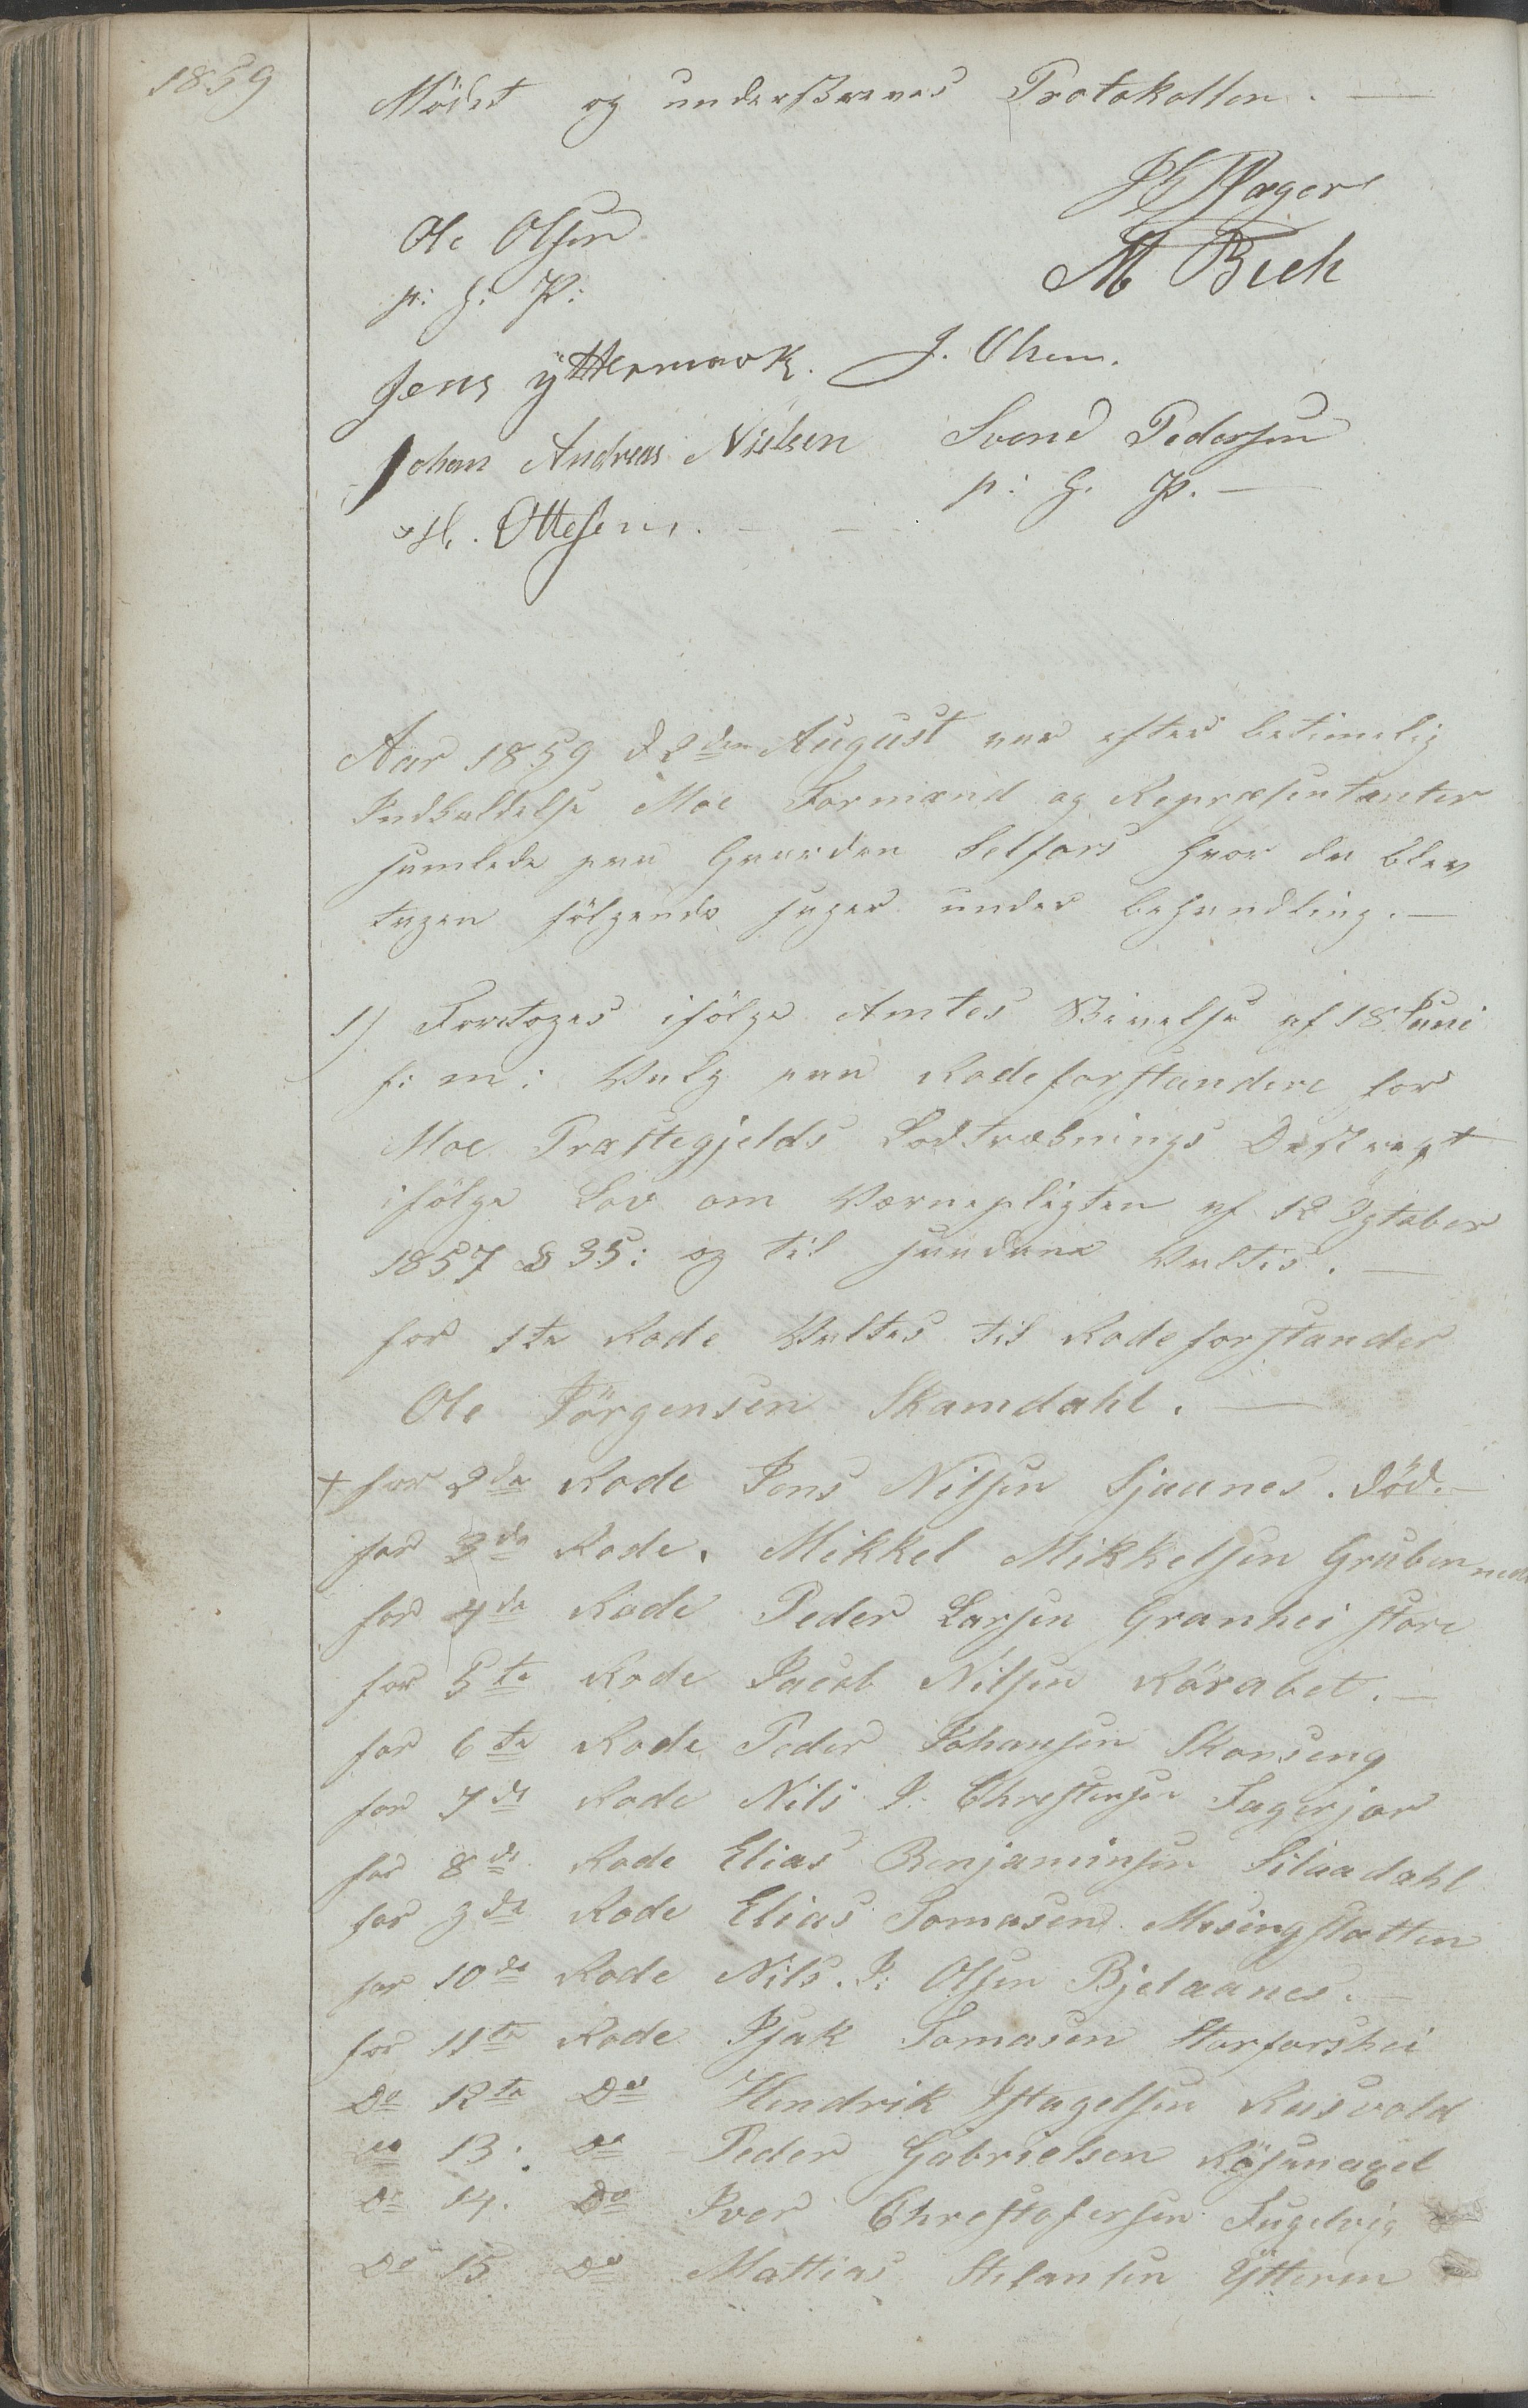 1859
Mödet og underskreves Protokollen. —
Ole Olsen
p: f. P:
M Bech
Jens yttermork. J. Olsen.
Johan Andreas Nielsen Svend Pedersen
p: f. P. —
H. Ottesen. — —
Aar 1859 d 2den August var efter betimelig
Indkaldelse Moe Formænd og Repræsentanter
samlede paa Gaarden Selfors hvor da blev
tagen fölgende sager under behandling. —
1) Foretoges ifölge Amtes Skrivelse af 18 Juni
f: m: Valg paa Rodeforstandere for
Moe Præstegjelds Lodtræknings Destregt
ifölge Lov om Værnepligten af 12 Ogtober
1857 § 35: og til saadane Valtes. —
for 1te Rode Valtes til Rodeforstander
Ole Jörgensen Skamdahl. —
+ for 2de Rode Jens Nilsen Sjaanes. död. —
for 3de Rode. Mikkel Mikkelsen Gruben nedr
for 4de Rode Peder Larsen Granhei store
for 5te Rode Jacob Nilsen Rörabet. —
for 6te Rode Peder Johansen Skonseng
for 7de Rode Nils J. Chrestensen Fagerjor
for 8de Rode Elias Benjaminsen Siluadahl
for 9de Rode Elias Tomasen Mesingsletten
for 10de Rode Nils. J: Olsen Bjelaanes. —
for 11te Rode Isak Tomasen Storforshei
Do 12te Do Hendrik Istagelsen Rusvold
Do 13. Do Peder Gabrielsen Rösunagel
Do 14. Do Iver Chrestofersen Fugelvig
Do 15 Do Mattias Stefansen Ytteren